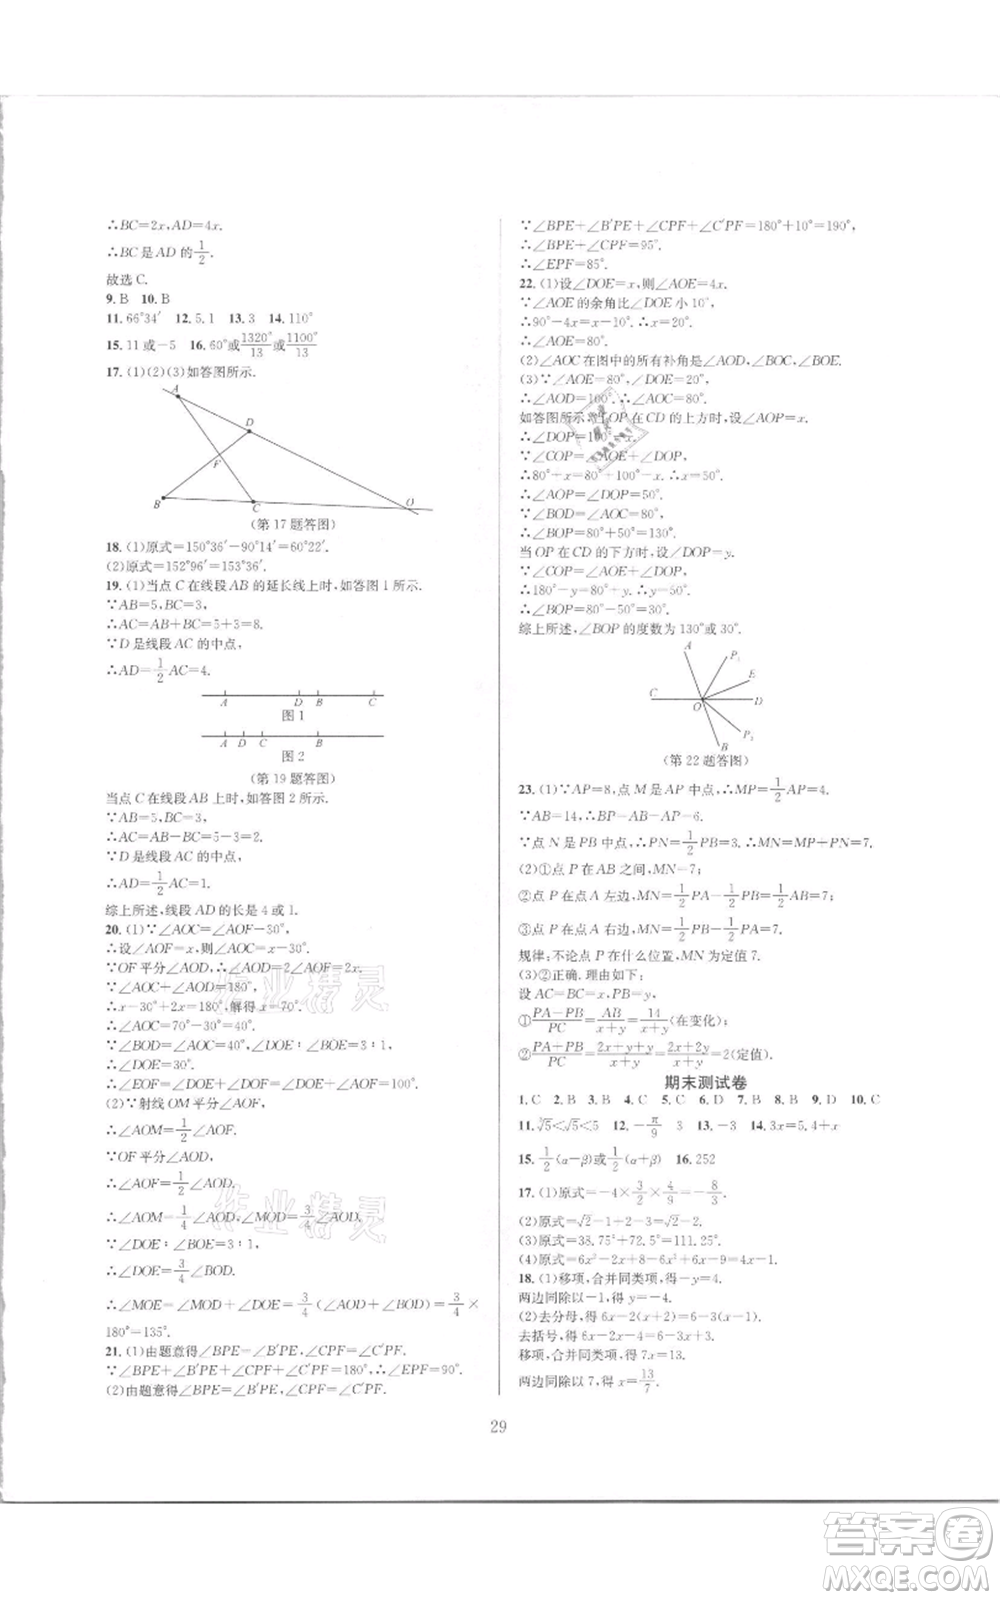 ∴BC=2x,AD=4x.
∴BC是AD的1/2.
故选C.
9.B 10.B
11.66°34′ 12.5.1 13.3 14.110°
15.11或-5 16.60°或1320°/13或1100°/13
17.(1)(2)(3)如答图所示.
A
D
F
B
C
O
(第17题答图)
18.(1)原式=150°36′-90°14′=60°22′.
(2)原式=152°96′=153°36′.
19.(1)当点C在线段AB的延长线上时,如答图1所示.
∵AB=5,BC=3,
∴AC=AB+BC=5+3=8.
∵D是线段AC的中点,
∴AD=1/2AC=4.
A D B C
图1
A D C B
图2
(第19题答图)
当点C在线段AB上时,如答图2所示.
∵AB=5,BC=3,
∴AC=AB-BC=5-3=2.
∵D是线段AC的中点,
∴AD=1/2AC=1.
综上所述,线段AD的长是4或1.
20.(1)∵∠AOC=∠AOF-30°,
∴设∠AOF=x,则∠AOC=x-30°.
∵OF平分∠AOD,∴∠AOD=2∠AOF=2x.
∵∠AOC+∠AOD=180°,
∴x-30°+2x=180°,解得x=70°.
∴∠AOC=70°-30°=40°.
∵∠BOD=∠AOC=40°,∠DOE=∠BOE=3:1,
∴∠DOE=30°.
∴∠EOF=∠DOE+∠DOF=30°+70°=100°.
(2)∵射线OM平分∠AOF,
∴∠AOM=1/2∠AOF.
∵OF平分∠AOD,
∴∠AOF=1/2∠AOD.
∴∠AOM=1/4∠AOD,∠MOD=3/4∠AOD.
∵∠DOE:∠BOE=3:1,
∴∠DOE=3/4∠BOD.
∴∠MOE=∠MOD+∠DOE=3/4(∠AOD+∠BOD)=3/4×
180°=135°.
21.(1)由题意得∠BPE=∠B′PE,∠CPF=∠C′PF.
∵∠BPE+∠B′PE+∠CPF+∠C′PF=180°,∴∠EPF=90°.
(2)由题意得∠BPE=∠B′PE,∠CPF=∠C′PF.
∵∠BPE+∠B′PE+∠CPF+∠C′PF=180°+10°=190°,
∴∠BPE+∠CPF=95°.
∴∠EPF=85°.
22.(1)设∠DOE=x,则∠AOE=4x.
∵∠AOE的余角比∠DOE小10°,
∴90°-4x=x-10°.∴x=20°.
∴∠AOE=80°.
(2)∠AOC在图中的所有补角是∠AOD,∠BOC,∠BOE.
(3)∵∠AOE=80°,∠DOE=20°,
∴∠AOD=100°.∴∠AOC=80°.
如答图所示,当OP在CD的上方时,设∠AOP=x.
∴∠DOP=100°-x.
∵∠COP=∠AOE+∠DOP,
∴80°+x=80°+100°-x.∴x=50°.
∴∠AOP=∠DOP=50°.
∵∠BOD=∠AOC=80°,
∴∠BOP=80°+50°=130°.
当OP在CD的下方时,设∠DOP=y.
∵∠COP=∠AOE+∠DOP,
∴180°-y=80°+y.∴y=50°.
∴∠BOP=80°-50°=30°.
综上所述,∠BOP的度数为130°或30°.
A
P₁
E
C
O
D
P₂
B
(第22题答图)
23.(1)∵AP=8,点M是AP中点,∴MP=1/2AP=4.
∵AB=14,∴BP=AB-AP=6.
∵点N是PB中点,∴PN=1/2PB=3.∴MN=MP+PN=7.
(2)①点P在AB之间,MN=7;
②点P在点A左边,MN=1/2PA-1/2PB=1/2AB=7;
③点P在点A右边,MN=1/2PB+1/2PA=7.
规律:不论点P在什么位置,MN为定值7.
(3)②正确.理由如下:
设AC=BC=x,PB=y,
①(PA-PB)/PC=AB/(x+y)=14/(x+y)(在变化);
②(PA+PB)/PC=(2x+y+y)/(x+y)=(2x+2y)/(x+y)=2(定值).
期末测试卷
1.C 2.B 3.B 4.C 5.C 6.C 7.B 8.B 9.D 10.C
11.∛5<√5<5 12.-π/9 3 13.-3 14.3x=5.4+x
15.1/2(α-β)或1/2(α+β) 16.252
17.(1)原式=-4×3/2×4/9=-8/3.
(2)原式=√2-1+2-√2=1.
(3)原式=38.75°+72.5°=111.25°.
(4)原式=6x²-2x+4-8+6x-6x²+3=4x-1.
18.(1)移项,合并同类项,得-y=4.
两边同除以-1,得y=-4.
(2)去分母,得6x-2(2-4x)=6-3(x-1).
去括号,得6x-4+2x=6-3x+3.
移项,合并同类项,得7x=13.
两边同除以7,得x=13/7.
29
作业精灵
作业精灵
答案卷
MXQE.COM